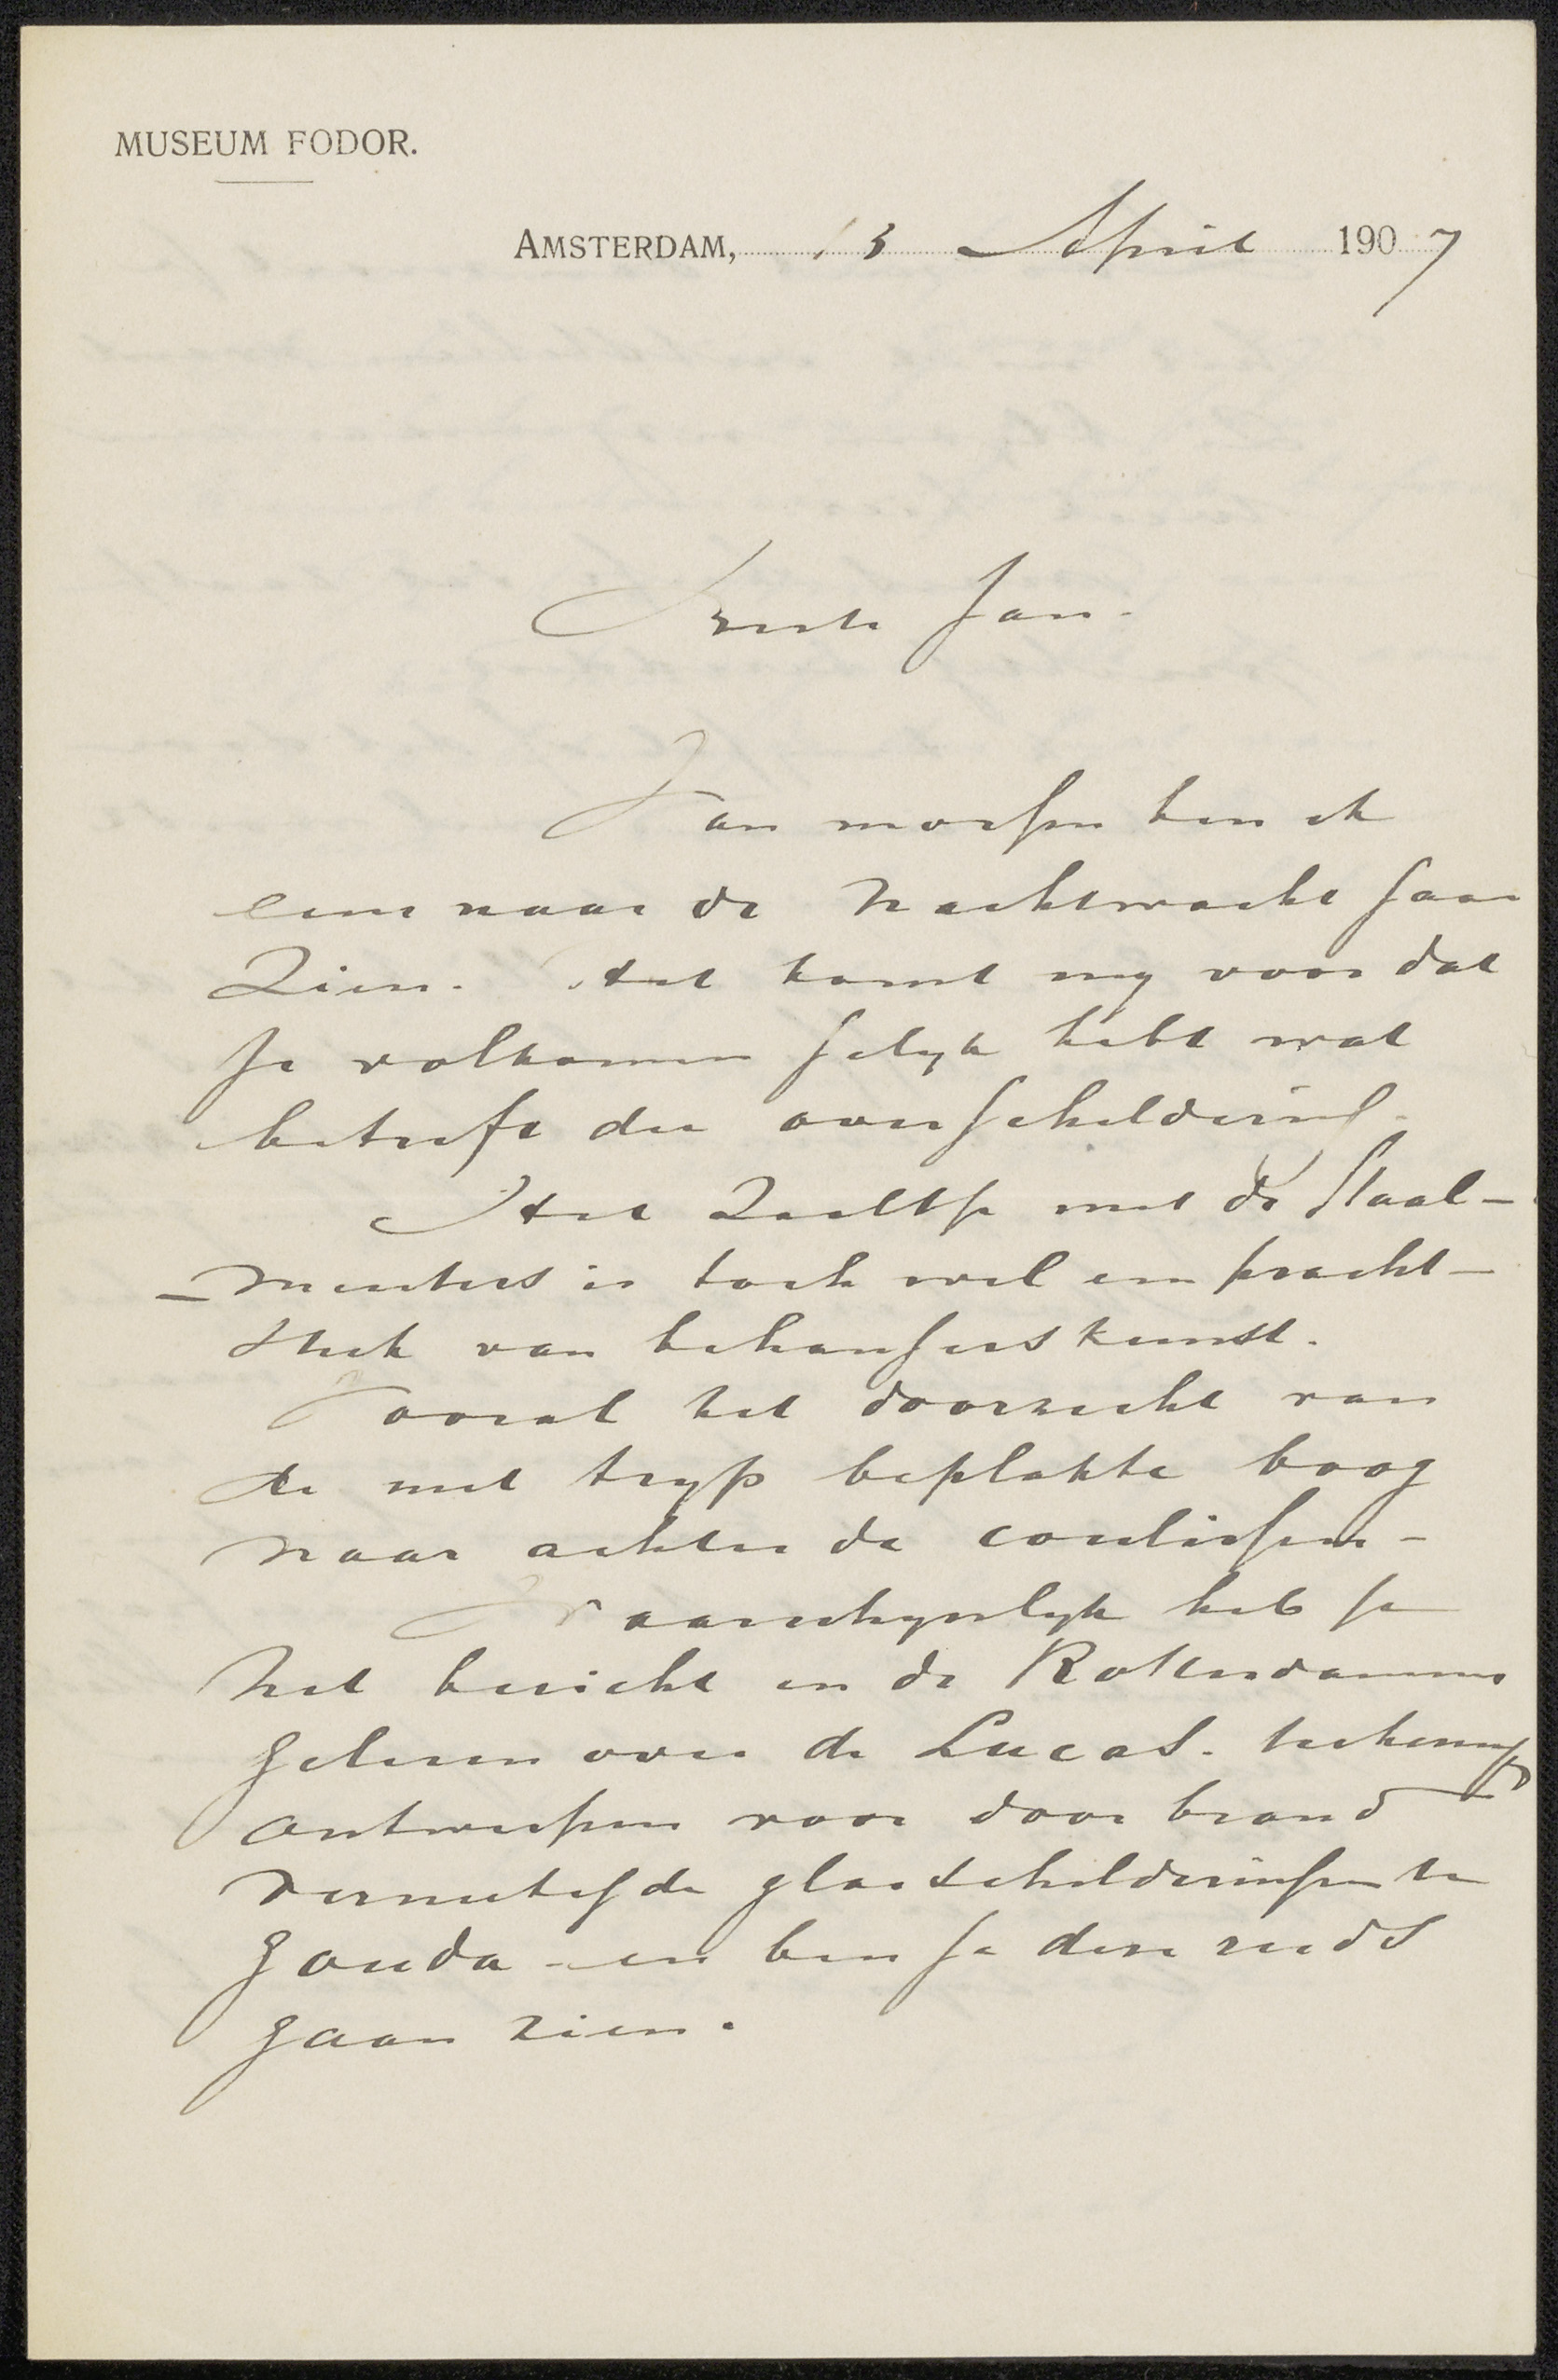 MUSEUM FODOR.
AMSTERDAM, 13 April 1907
Beste Jan.
Van morgen ben ik
eens naar de Nachtwacht gaan
Zien. Het komt mij voor dat
je volkomen gelijk hebt wat
betreft die overschildering.
Het Zaaltje met de Staal-
-meesters is toch wel een pracht-
stuk van behangerskunst.
Vooral het doorzicht van
de met trijp beplakte boog
naar achter de coulissen-
Waarschijnlijk heb je
het bericht in de Rotterdammer
gelezen over de Lucas.
ontwerpen voor door brand
vernietigde glasschilderingen te
Gouda - en ben je deze reeds
gaan zien.